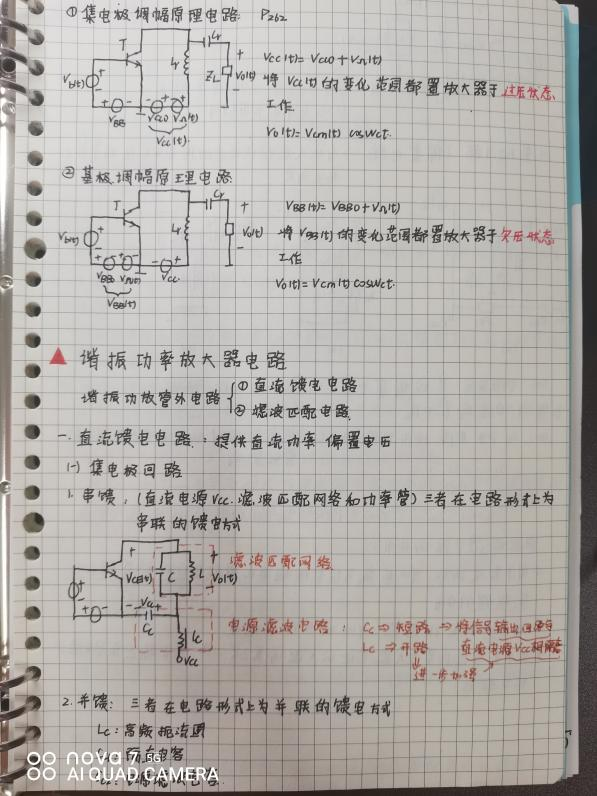 ① 集电极调幅原理电路. P262
T
Lr
Cr
+
ZL
Vo(t)
-
Vb(t)
VBB
Vcc0 VΩ(t)
Vcc(t)
Vcc(t)=Vcc0+VΩ(t)
将 Vcc(t) 的变化范围都置放大器于过压状态
工作.
Vo(t)=Vcm(t) cosωct.
② 基极调幅原理电路.
T
Lr
Cr
+
Vo(t)
-
Vb(t)
VBB0 VΩ(t)
VBB(t)
Vcc
VBB(t)=VBB0+VΩ(t)
将 VBB(t) 的变化范围都置放大器于欠压状态
工作
Vo(t)=Vcm(t) cosωct.
▲ 谐振功率放大器电路
谐振功放管外电路 { ① 直流馈电电路
② 滤波匹配电路.
一. 直流馈电电路: 提供直流功率 偏置电压
(一) 集电极回路
1. 串馈: (直流电源Vcc. 滤波匹配网络和功率管) 三者在电路形式上为
串联的馈电方式
+
VCE(t)
-
C
L
+
Vo(t)
-
Cc
Lc
Vcc
滤波匹配网络
电源滤波电路: Cc ⇒ 短路 ⇒ 将信号输出回路与
Lc ⇒ 开路 直流电源Vcc相隔离
进一步加强
2. 并馈: 三者在电路形式上为并联的馈电方式
Lc: 高频扼流圈
电容
电路.
nova 7 5G
AI QUAD CAMERA